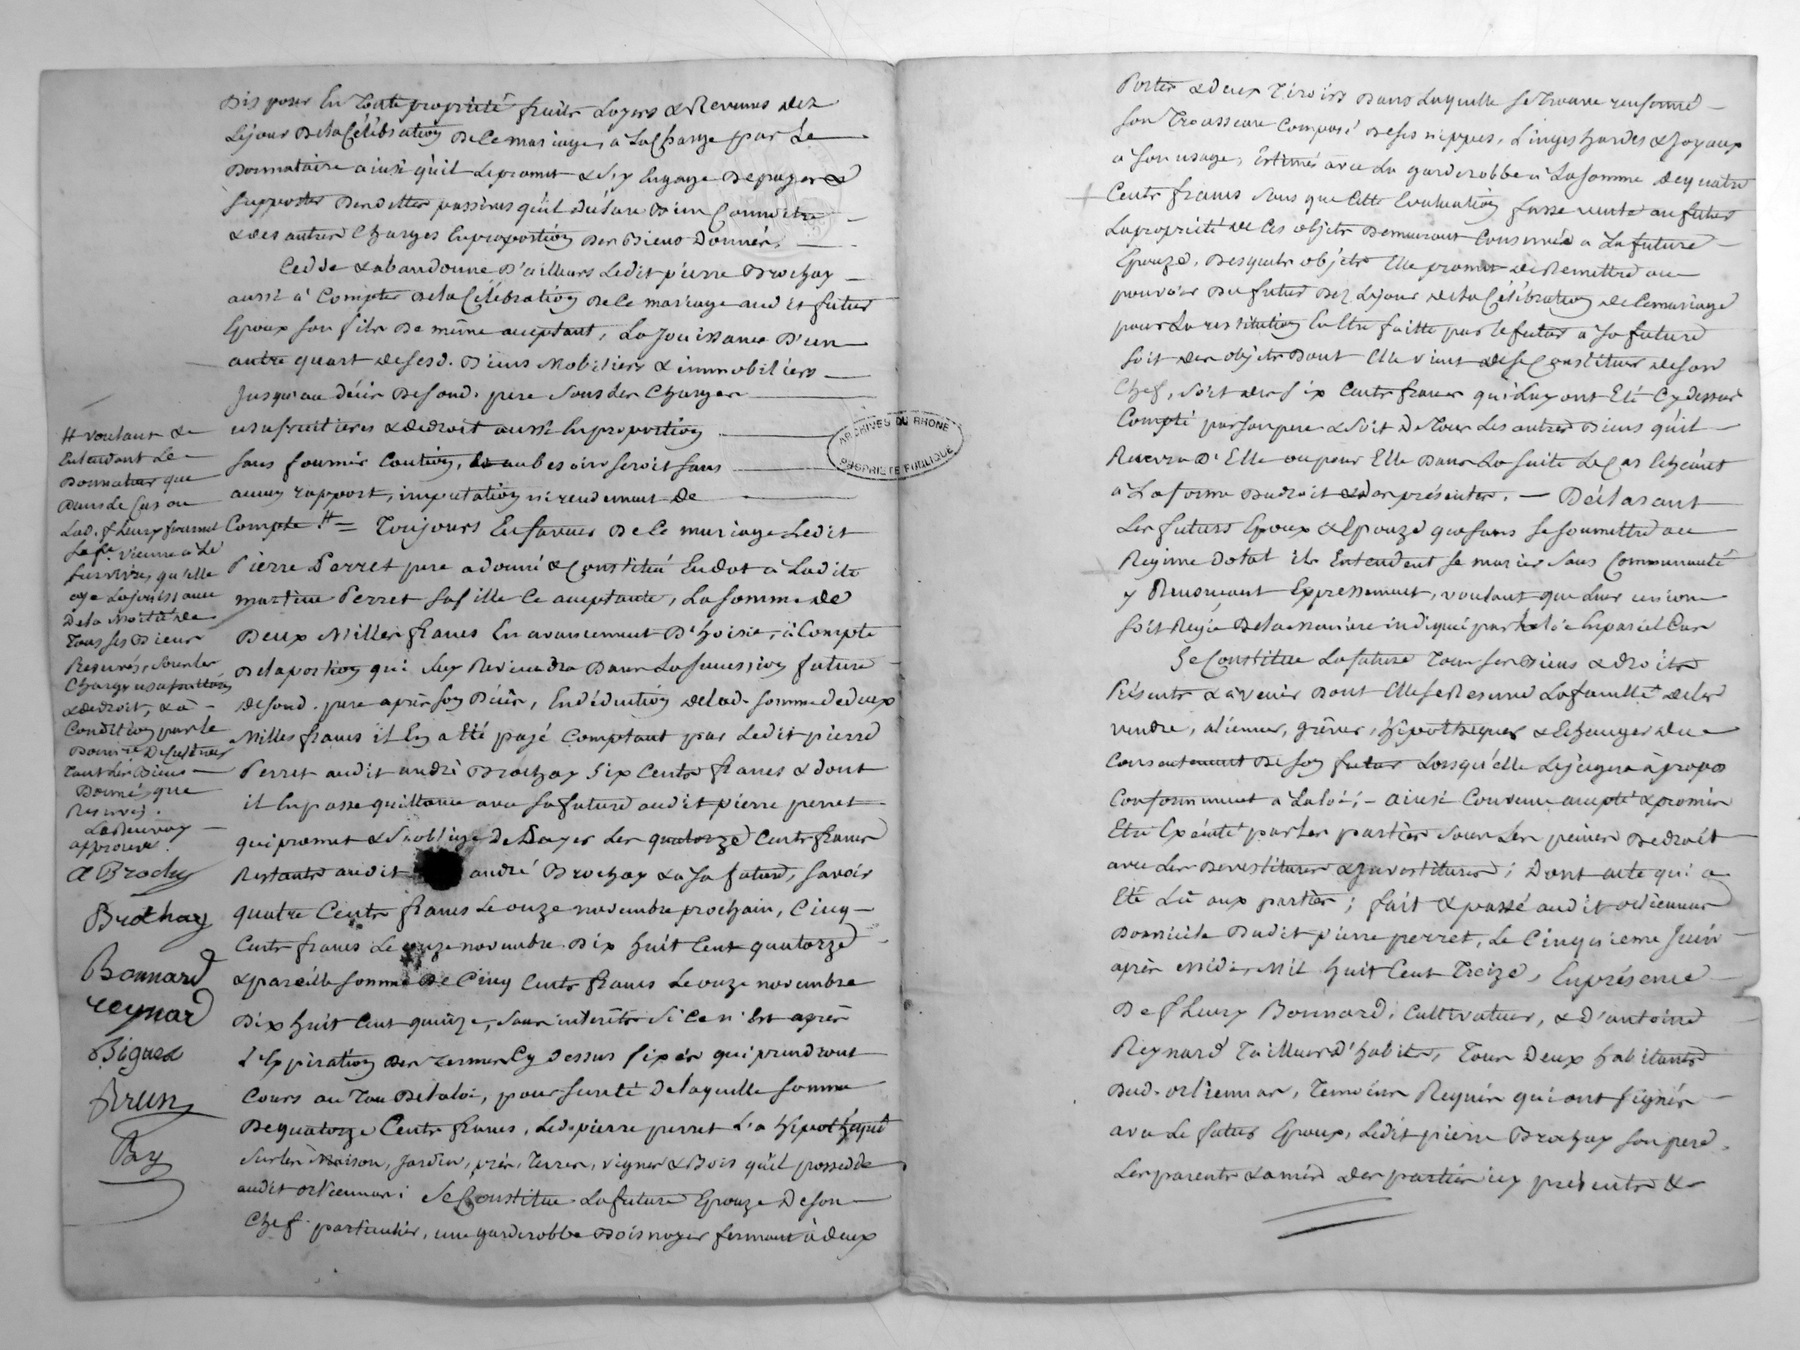 Disposer En Toute propriété fruits Loyers & Revenus dez
Le jour de la Célébration de ce mariage, à La Charge par Le
Donnataire ainsi qu'il Le promet & s'y Engage de payer &
supporter des dettes passives qu'il déclare Bien Connoitre
& des autres Charges En proportion des Biens Donnés,
Cedde & abandonne D'ailleurs Ledit pierre Brochay
aussi à Compter de la Célébration de ce mariage audit futur
Epoux son fils de même acceptant, La Jouissance D'un
autre quart de sesd. Biens Mobiliers & immobiliers
Jusqu'au décès desond. pere sous les Charges
usufruitieres & de droit aussi En proportion
sans fournir Caution, au besoin seroit sans
aucun rapport, imputation ni rendement de
Compte # = Toujours En faveur de ce mariage Ledit
Pierre Perret pere a donné & Constitué En dot à Ladite
martine Perret sa fille Ce acceptante, La somme de
Deux Milles francs En avancement D'hoirie, à Compte
de la portion qui Luy Reviendra Dans La succession future
desond. pere après son Décès, En déduction de lad. somme de deux
Milles francs il En a été payé Comptant par Ledit pierre
Perret audit andré Brochay Six Cents francs & dont
il En passe quittance avec sa future audit pierre perret
qui promet & s'oblige de Payer Les quatorze Cents francs
Restants audit andré Brochay & a sa future, savoir
quatre Cents francs Le onze novembre prochain, Cinq
Cents francs Le onze novembre Dix huit Cent quatorze
& pareille somme de Cinq Cents francs Le onze novembre
Dix huit Cent quinze, sans interêts si ce n'Est après
L'Expiration des termes Cy dessus fixés qui prendront
Cours au Taux de la loi, pour sureté de laquelle somme
de quatorze Cents francs, Led. pierre perret L'a hipothéqué
sur les Maison, Jardin, prés, Terres, vignes & Bois qu'il possedde
audit orliennas; Se Constitue La future Epouze de son
Chef particulier, une garderobbe Bois noyer fermant à deux
# voulant &
Entendant Le
Donnateur que
dans le Cas ou
Lad. fleury
La fe. vienne à Le
survivre, qu'elle
aye La jouissance
de la Moitié de
Tous ses Biens
Reservés, sous les
Charges usufruitieres
& de droit, & à
Condition par le
tant les Biens
Donnés, que
Reservés.
Le Renvoy
approuvé.
A Brochy
Brochay
Bonnard
reynard
Brun
Pay
Portes & deux Tiroirs Dans Laquelle se trouve renfermé
son Trousseau Composé de ses nippes, Linges hardes & Joyaux
à son usage, Estimés avec La garderobbe à La somme de quatre
Cents francs sans que Cette Evaluation fasse vente au futur
La propriété de ces objets Demeurant Conservée a La future
Epouze, Desquels objets Elle promet de Remettre au
pouvoir du futur dez Le jour de la Célébration de ce mariage
pour La restitution En Etre faitte par le futur a sa future
soit des objets Dont Elle vient de se Constituer de son
Chef, soit des six Cents francs qui Luy ont Eté Cy dessus
Compté par son pere & soit de Tous Les autres Biens qu'il
Recevra D'Elle ou pour Elle Dans La suite Le Cas Echéant
à La forme du droit & des présentes. — Déclarant
Les futurs Epoux & Epouze que sans se soumettre au
Regime dotal ils Entendent se marier sans Communauté
y Renonçant Expressement, voulant que Leur union
soit Regie de la maniere indiquée par la loi En pareil Cas
Se Constitue La future Tous ses Biens & droits
Présents & à venir Dont Elle se Reserve La faculté de les
vendre, aliener, grêver, hipothequer & Echanger du
Consentement de son futur Lorsqu'elle Le jugera à propos
Conformement a La loi; — ainsi Convenu accepté & promis
Etre Executé par les parties sous les peines de droit
avec les devestitures & Investitures; Dont acte qui a
Eté Lû aux parties; fait & passé audit orliennas
Domicile Dudit pierre perret, Le Cinquieme Juin
après Midi, Mil huit Cent Treize, En présence
De fleury Bonnard, Cultivateur, & D'antoine
Reynard Tailleur D'habits, Tous Deux habitants
Dud. orliennas, Temoins Requis qui ont signés
avec Le futur Epoux, Ledit pierre Brochay son pere,
Les parents & amis des parties icy présents &
ARCHIVES DU RHONE
PROPRIETE PUBLIQUE